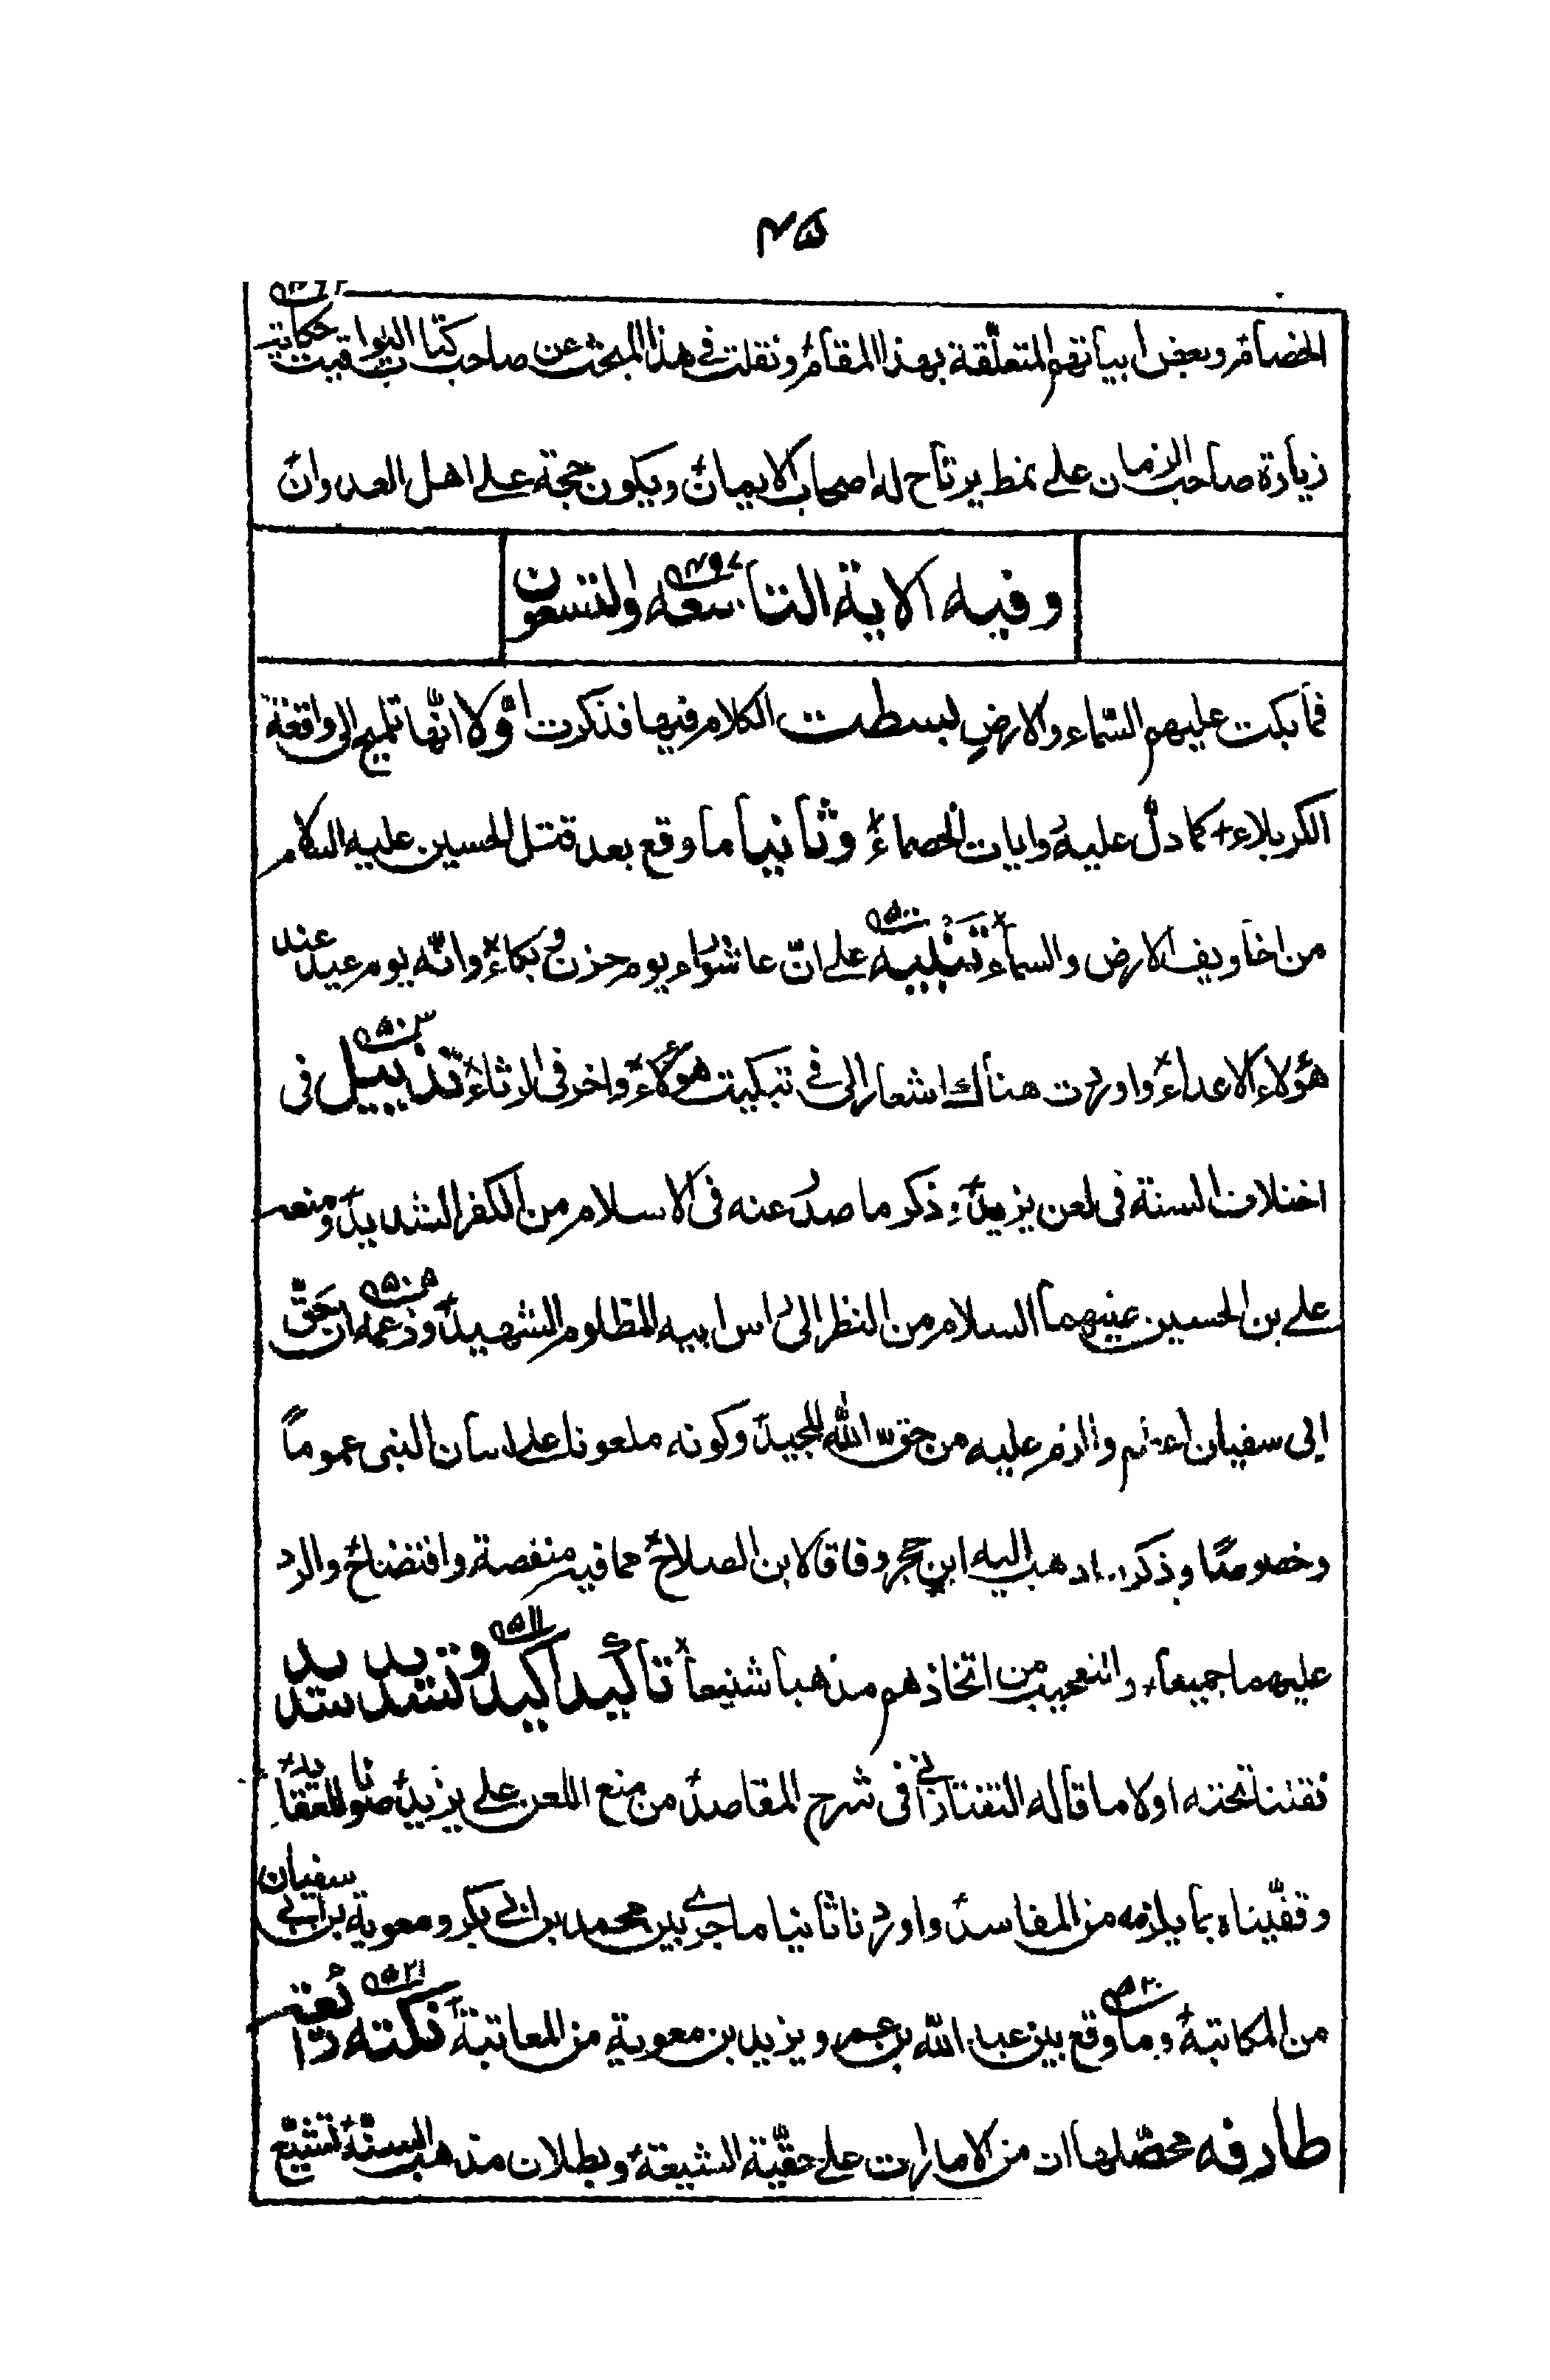 ٤٥
الخصام وبعض ابياتهم المتعلّقة بهذا المقام ونقلت في هذا المبحث عن صاحب كتاب اليواقيت حكاية
زيارة صاحب الزمان على نمط يرتاح له اصحاب الايمان ويكون حجة على اهل العدوان
وفيه الاية التاسعه والتسعون
فما بكت عليهم السّماء والارض بسطت الكلام فيها فذكرت اوّلا انّها تلميح الى واقعة
الكربلاء كما دلّ عليه روايات الخصماء وثانيا ما وقع بعد قتل الحسين عليه السلام
من اخاويف الارض والسماء تنبيه على انّ عاشوراء يوم حزن وبكاء وانّه يوم عيد عند
هؤلاء الاعداء واوردت هناك اشعارا لى في تبكيت هؤلاء واخر فى الرثاء تذييل فى
اختلاف السنة فى لعن يزيد وذكر ما صدر عنه فى الاسلام من الكفر الشديد ومنعه
على بن الحسين عليهما السلام من النظر الى راس ابيه المظلوم الشهيد وزعمه ان حقّ
ابى سفيان اعظم والزم عليه من حق اللّه المجيد وكونه ملعونا على لسان النبى عموماً
وخصوصًا وذكر ما ذهب اليه ابن حجر وفاقا لابن الصلاح مما فيه منقصة وافتضاح والرد
عليهما جميعا والتعجيب من اتخاذهم مذهبا شنيعا تأكيد اكيد وتشديد سديد
نقلنا تحته اولا ما قاله التفتازانى فى شرح المقاصد من منع اللعن على يزيد صونا للعقايد
وقفّيناه بما يلزمه من المفاسد واوردنا ثانيا ما جرى بين محمد بن ابى بكر ومعوية بن ابى سفيان
من المكاتبة وما وقع بين عبد اللّه بن عمر ويزيد بن معوية من المعاتبة نكته رائقه
طارفه محصّلها ان من الامارات على حقيّة الشيعة وبطلان مذهب السنّة تشنيع